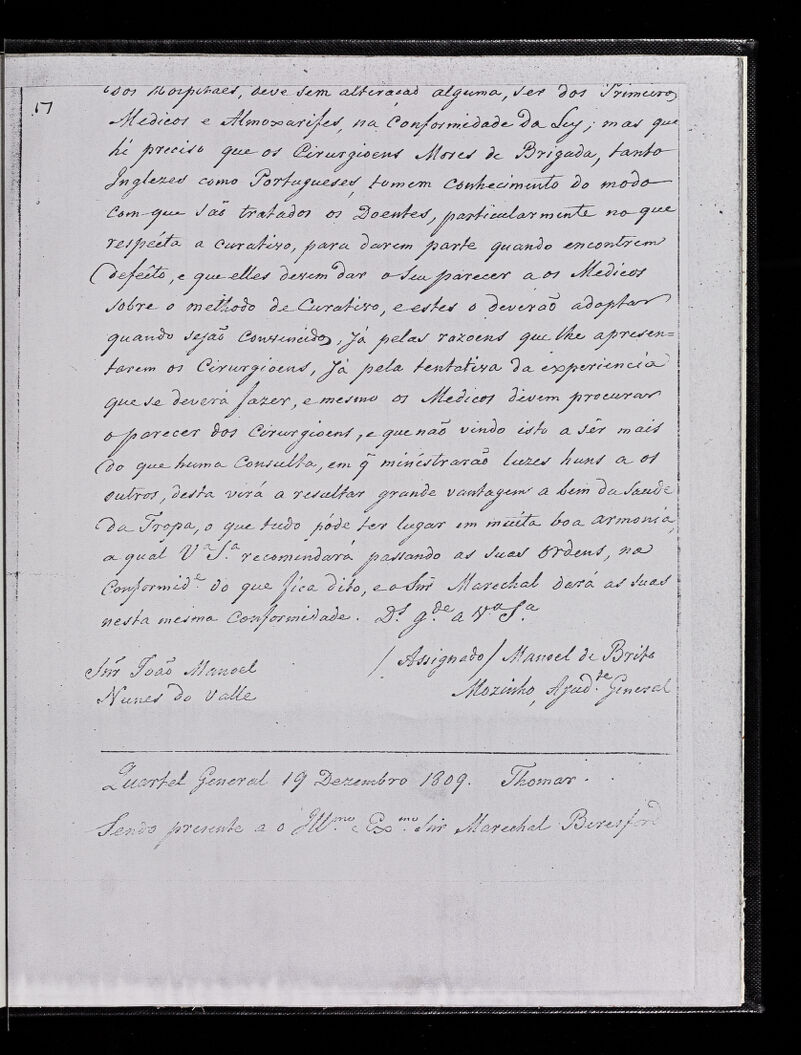 17
dos Hospitaes, deve sem alteraçaõ alguma, ser dos Primeiros
Medicos e Almoxarifes, na Conformidade da Ley; mas que
hé preciso que os Cirurgioens Mores de Brigada, tanto
Inglezes como Portugueses, tomem Conhecimento do modo
Com que saõ tratados os Doentes, particularmente no que
respeita a curativo, para darem parte quando encontrem
defeito, e que elles devem dar o seu parecer a os Medicos
sobre o methodo de Curativo, e estes o deveraõ adoptar
quando sejaõ Convencidos, já pelas razoens que lhe apresen=
tarem os Cirurgioens, já pela tentativa da experiencia
que se deverá fazer, e mesmo os Medicos devem procurar
o parecer dos Cirurgioens, e que naõ vindo isto a sêr mais
do que huma Consulta, em q̃ ministraraõ luzes huns a os
outros, desta virá a resultar grande vantagem a bem da Saude
da Tropa, o que tudo póde ter lugar em muita boa armonia,
a qual V.ª S.ª recomendará passando as suas ordens, na
Conformid.e do que fica dito, e o Snr̃ Marechal dará as suas
nesta mesma Conformidade. D.s g.de a V.ª S.ª
Snr̃ Joaõ Manoel / Assignado / Manoel de Brito
Nunes do Valle Mozinho, Ajud.te General
Quartel General 19 Dezembro 1809. Thomar.
Sendo presente a o Ill.mo e Ex.mo Snr̃ Marechal Beresford